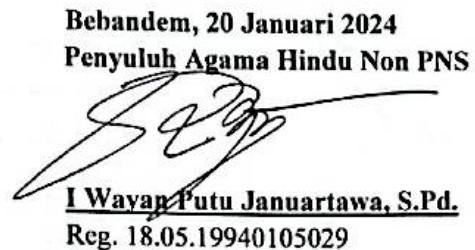 Bebandem, 20 Januari 2024
Penyuluh Agama Hindu Non PNS
I Wayan Putu Januartawa, S.Pd.
Reg. 18.05.19940105029